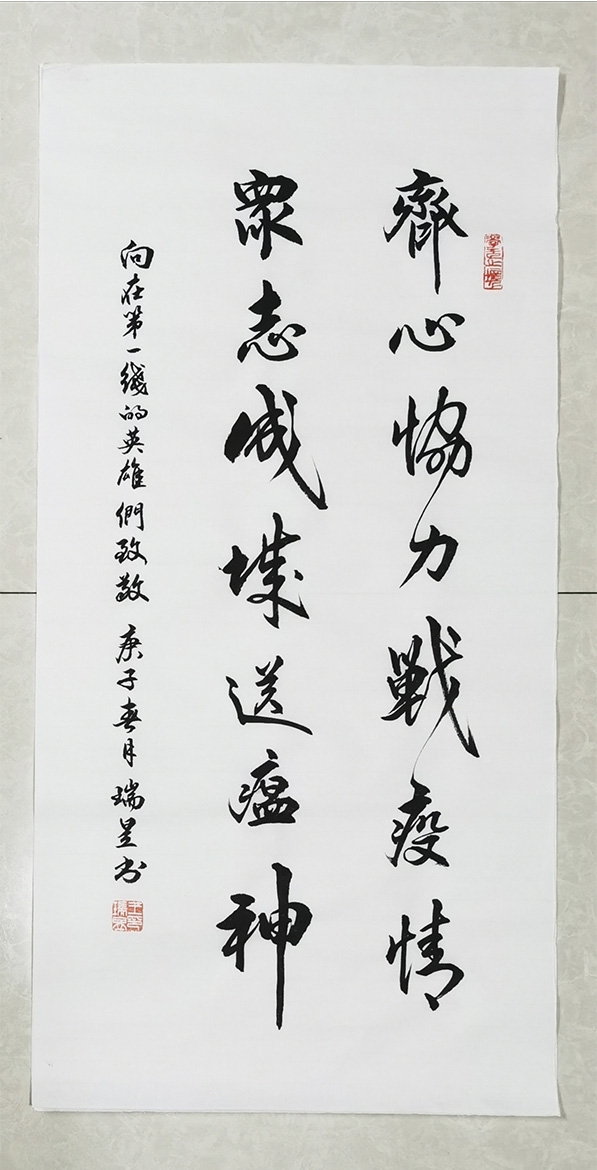 齊心協力戰疫情
眾志成城送瘟神
向在第一綫的英雄們致敬 庚子春月 瑞昱书